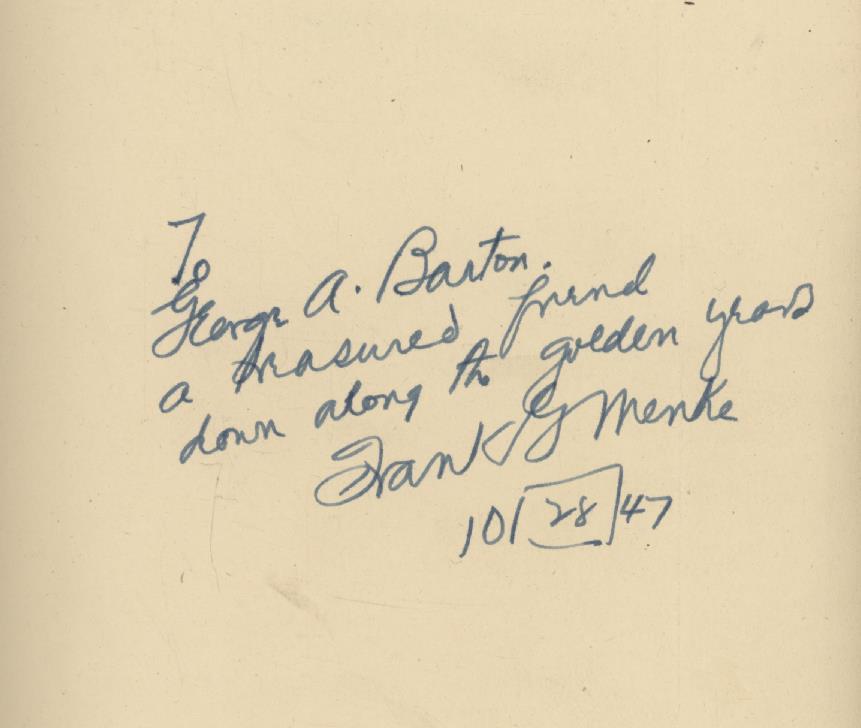 To
George A. Barton.
a treasured friend
down along the golden years
Frank G Menke
10/28/47